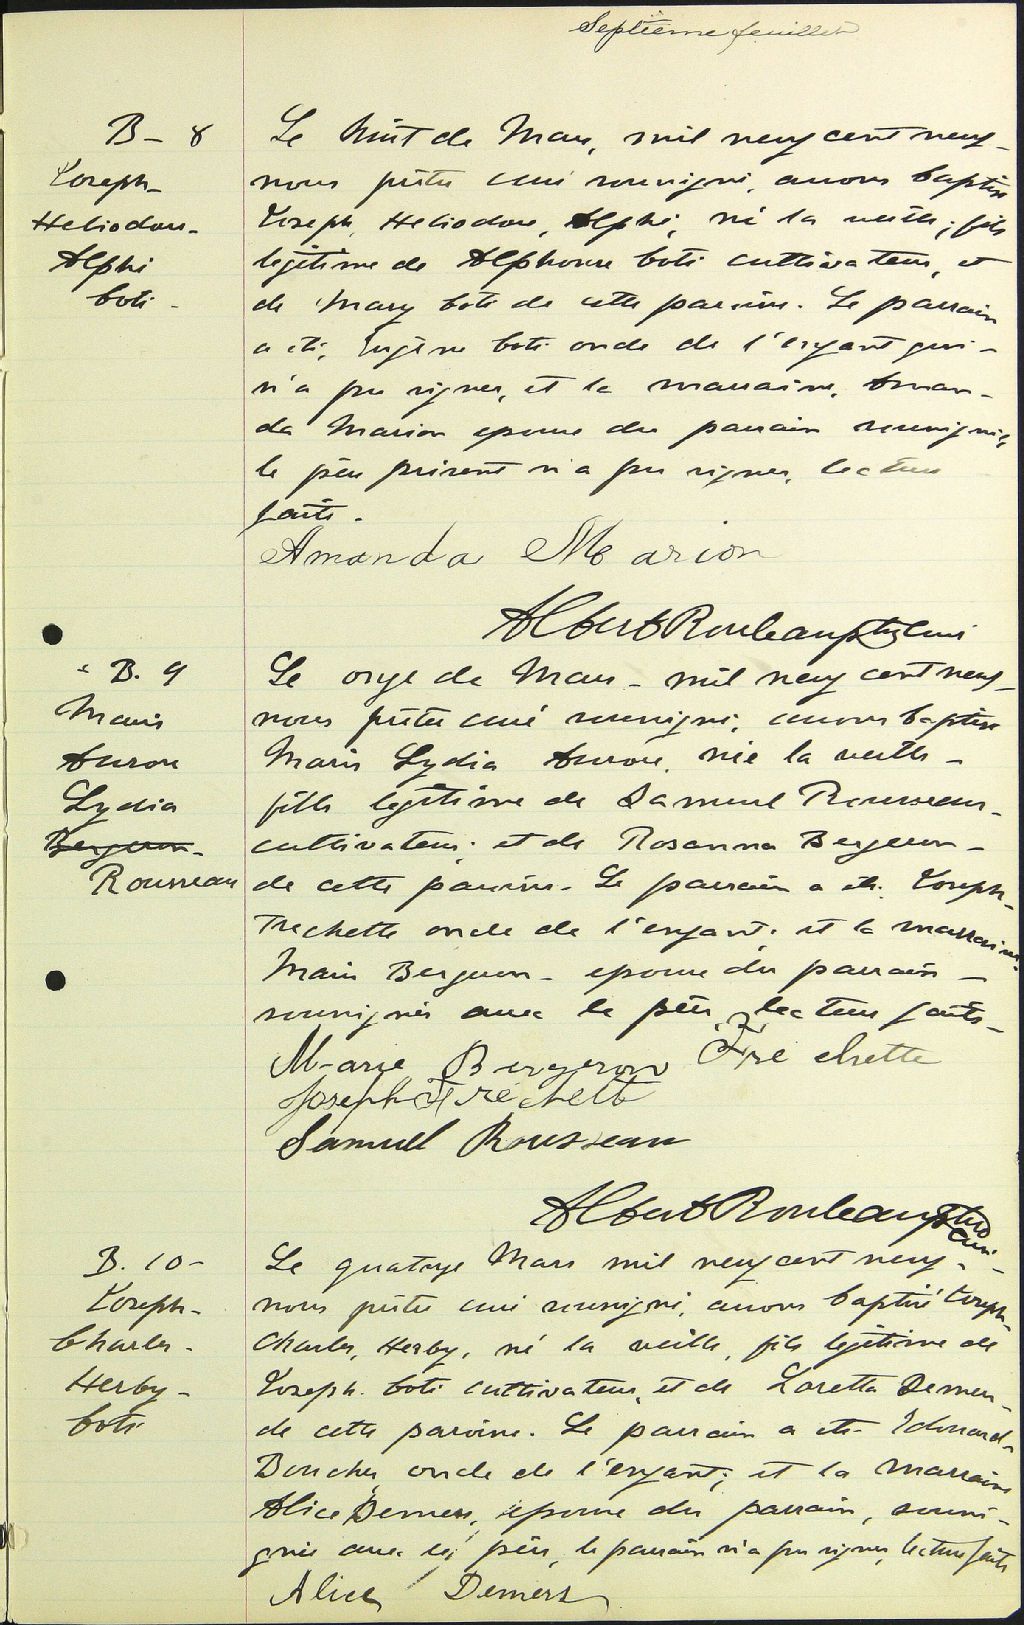 Septième feuillet
B-8
Joseph-
Heliodore-
Alphé
Coté-
Le huit de Mars, mil neuf cent neuf-
nous prêtre curé soussigné, avons baptisé
Joseph, Heliodore, Alphé, né la veille, fils
légitime de Alphonse Coté cultivateur, et
de Mary Coté de cette paroisse. Le parrain
a été, Eugène Coté oncle de l'enfant qui-
n'a pu signer, et la marraine, Aman-
da Marion epouse du parrain soussignée,
le père présent n'a pu signer, lecture
faite.
Amanda Marion
Albert Rouleau ptre curé
B. 9
Marie
Aurore
Lydia
Bergeron-
Rousseau
Le onze de Mars- mil neuf cent neuf-
nous prêtre curé soussigné, avons baptisé
Marie Lydia Aurore, née la veille-
fille légitime de Samuel Rousseau-
cultivateur, et de Rosanna Bergeron-
de cette paroisse. Le parrain a été Joseph-
Frechette oncle de l'enfant; et la marraine
Marie Bergeron- epouse du parrain-
soussignés avec le père, lecture faite-
Marie Bergeron Frechette
Joseph Frechette
Samuel Rousseau
Albert Rouleau ptre
curé
B. 10-
Joseph-
Charles-
Herby-
Coté
Le quatorze Mars mil neuf cent neuf-
nous prêtre curé soussigné, avons baptisé Joseph-
Charles, Herby, né la veille, fils légitime de
Joseph Coté cultivateur, et de Loretta Demers-
de cette paroisse. Le parrain a été Edouard-
Boucher oncle de l'enfant; et la marraine
Alice Demers, epouse du parrain, soussi-
gnée avec le père, le parrain n'a pu signer, lecture faite
Alice Demers